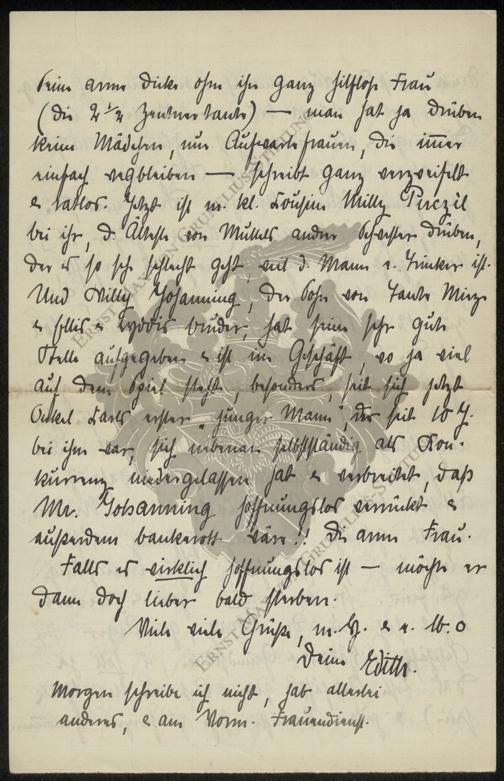 Seine arme dicke ohne ihn ganz hilflose Frau
(die 2 1/2 Zentnertante) — man hat ja drüben
keine Mädchen, nur Aufwartefrauen, die immer
einfach wegbleiben — schreibt ganz verzweifelt
& ratlos. Jetzt ist m. kl. Cousine Milly Purczil
bei ihr, d. Älteste von Muttels andrer Schwester drüben,
der es so sehr schlecht geht, weil d. Mann e. Trinker ist.
Und Willy Johanning, der Sohn von Tante Minze
& Ellis & Lyddis Bruder, hat seine sehr gute
Stelle aufgegeben & ist im Geschäft, wo ja viel
auf dem Spiel steht, besonders, seit sich jetzt
Onkel Karls erster "junger Mann", der seit 10 J.
bei ihm war, sich nebenan selbstständig als Kon-
kurrenz niedergelassen hat & verbreitet, daß
Mr. Johanning hoffnungslos verrückt &
außerdem bankerott wäre!! Die arme Frau.
Falls es wirklich hoffnungslos ist — möchte er
dann doch lieber bald sterben.
Viele viele Grüße, m. H. & e.
Deine Edith.
Morgen schreibe ich nicht, hab allerlei
anderes, & am Vorm. Frauendienst.
ERNST MAX VON GRUNELIUS-STIFTUNG
ERNST MAX VON GRUNELIUS-STIFTUNG